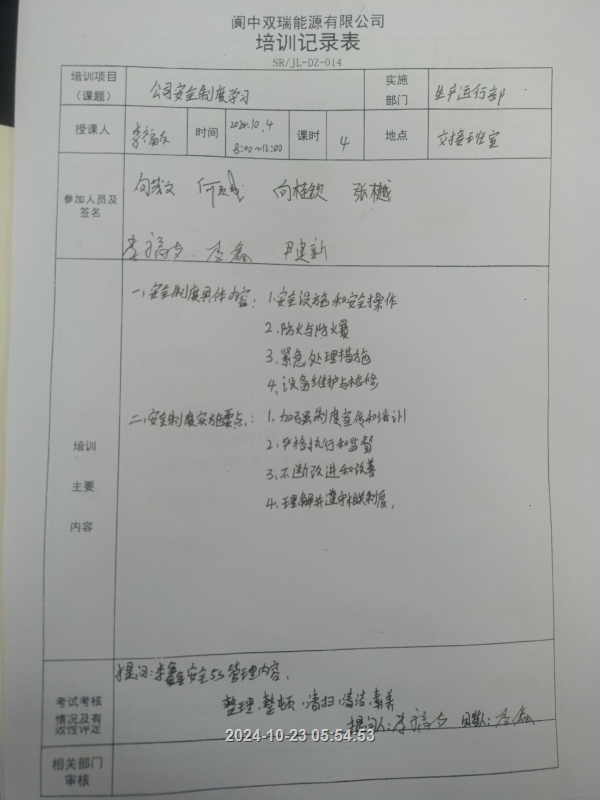 阆中双瑞能源有限公司
培训记录表
SR/JL-DZ-014
培训项目（课题） 公司安全制度学习 实施部门 生产运行部
授课人 时间 2024.10.4 8:00~12:00 课时 4 地点 交接班室
参加人员及签名
向桂钦 张樾
李鑫 尹建新
培训主要内容
一、安全制度具体内容： 1.安全设施和安全操作
2.防火与防爆
3.紧急处理措施
4.设备维护与检修
二、安全制度实施要点： 1.加强制度宣传和培训
2.严格执行和监督
3.不断改进和改善
4.理解并遵守相关制度。
考试考核情况及有效性评定
提问：李鑫安全5S管理内容。
整理、整顿、清扫、清洁、素养
提问人： 回答：李鑫
2024-10-23 05:54:53
相关部门审核